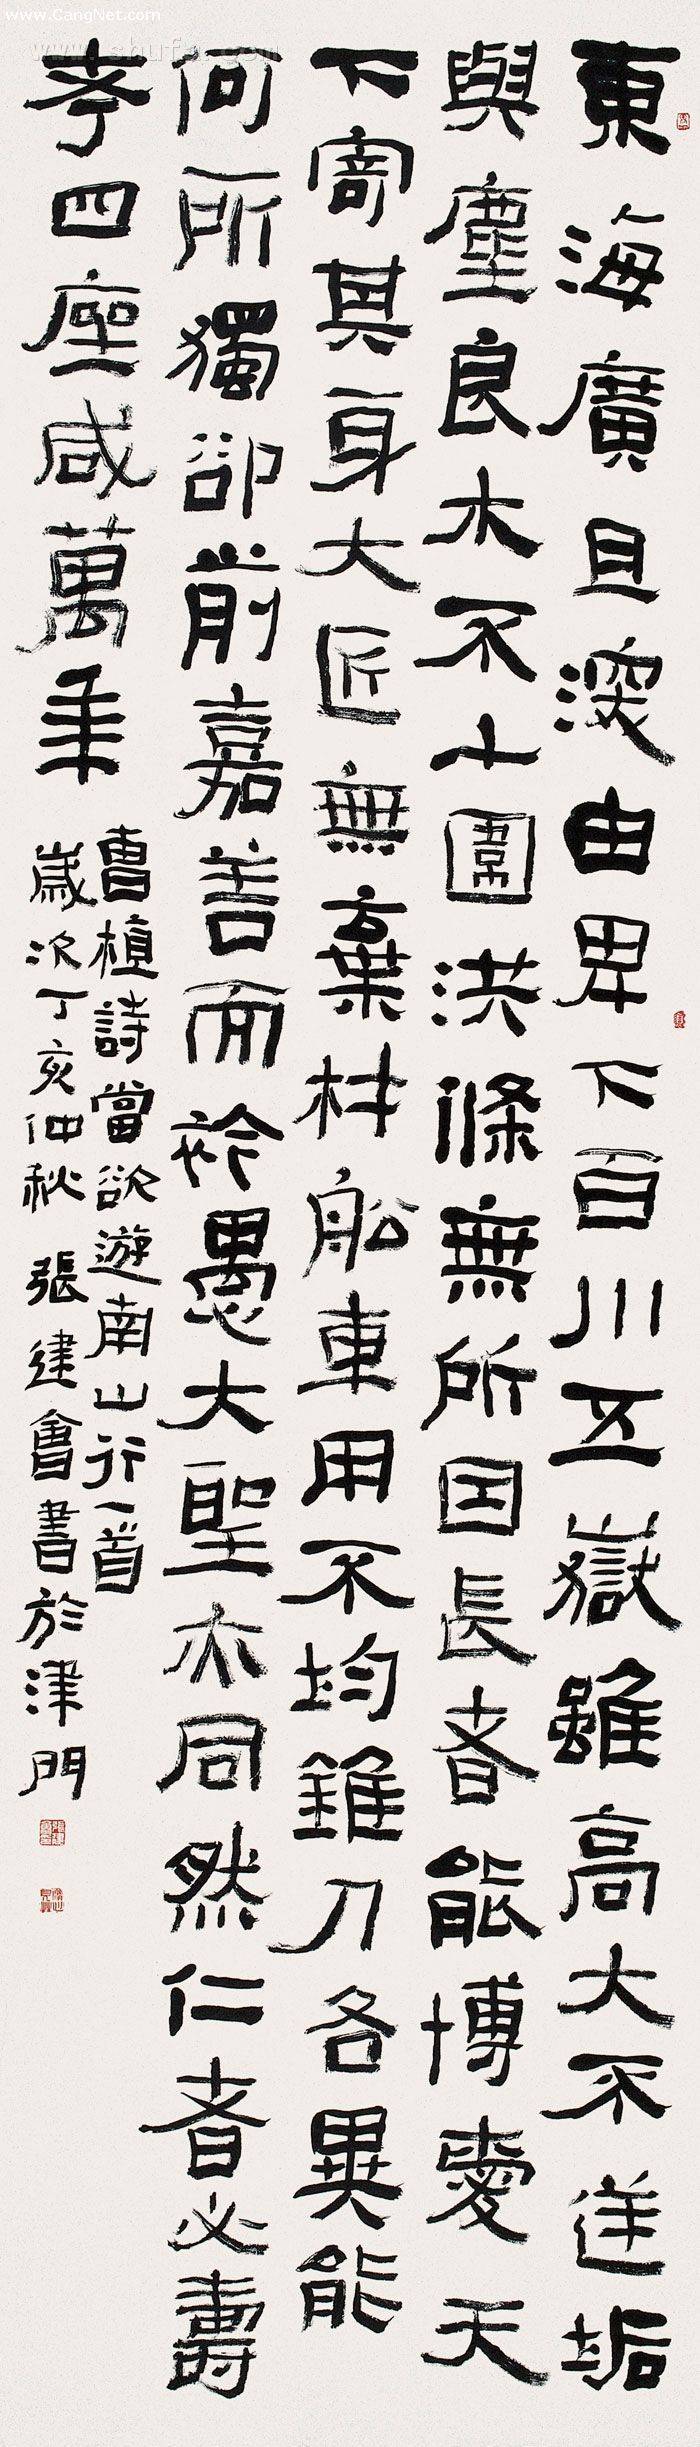 www.CangNet.com
東海廣且深由卑下百川五嶽雖高大不逆垢
與塵良木不十圍洪條無所因長者能博愛天
下寄其身大匠無棄材船車用不均錐刀各異能
何所獨卻前嘉善而矜愚大聖亦同然仁者必壽
考四座咸萬年
曹植詩當欲遊南山行一首
歲次丁亥仲秋 張建會書於津門